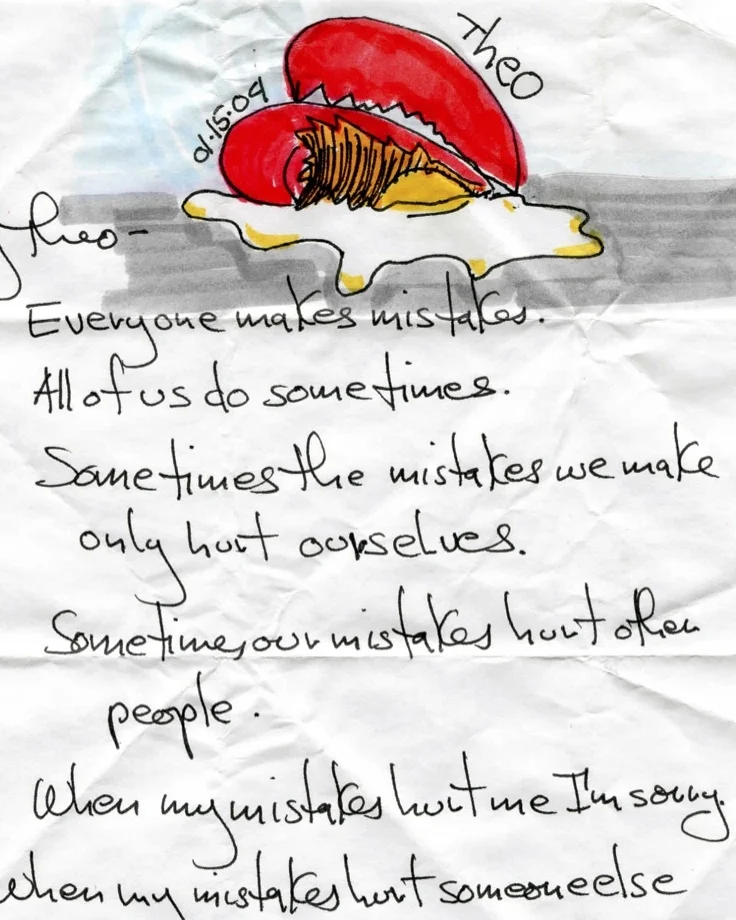 Theo
01.15.04
Theo-
Everyone makes mistakes.
All of us do sometimes.
Sometimes the mistakes we make
only hurt ourselves.
Sometimes our mistakes hurt other
people.
When my mistakes hurt me I'm sorry.
When my mistakes hurt someone else